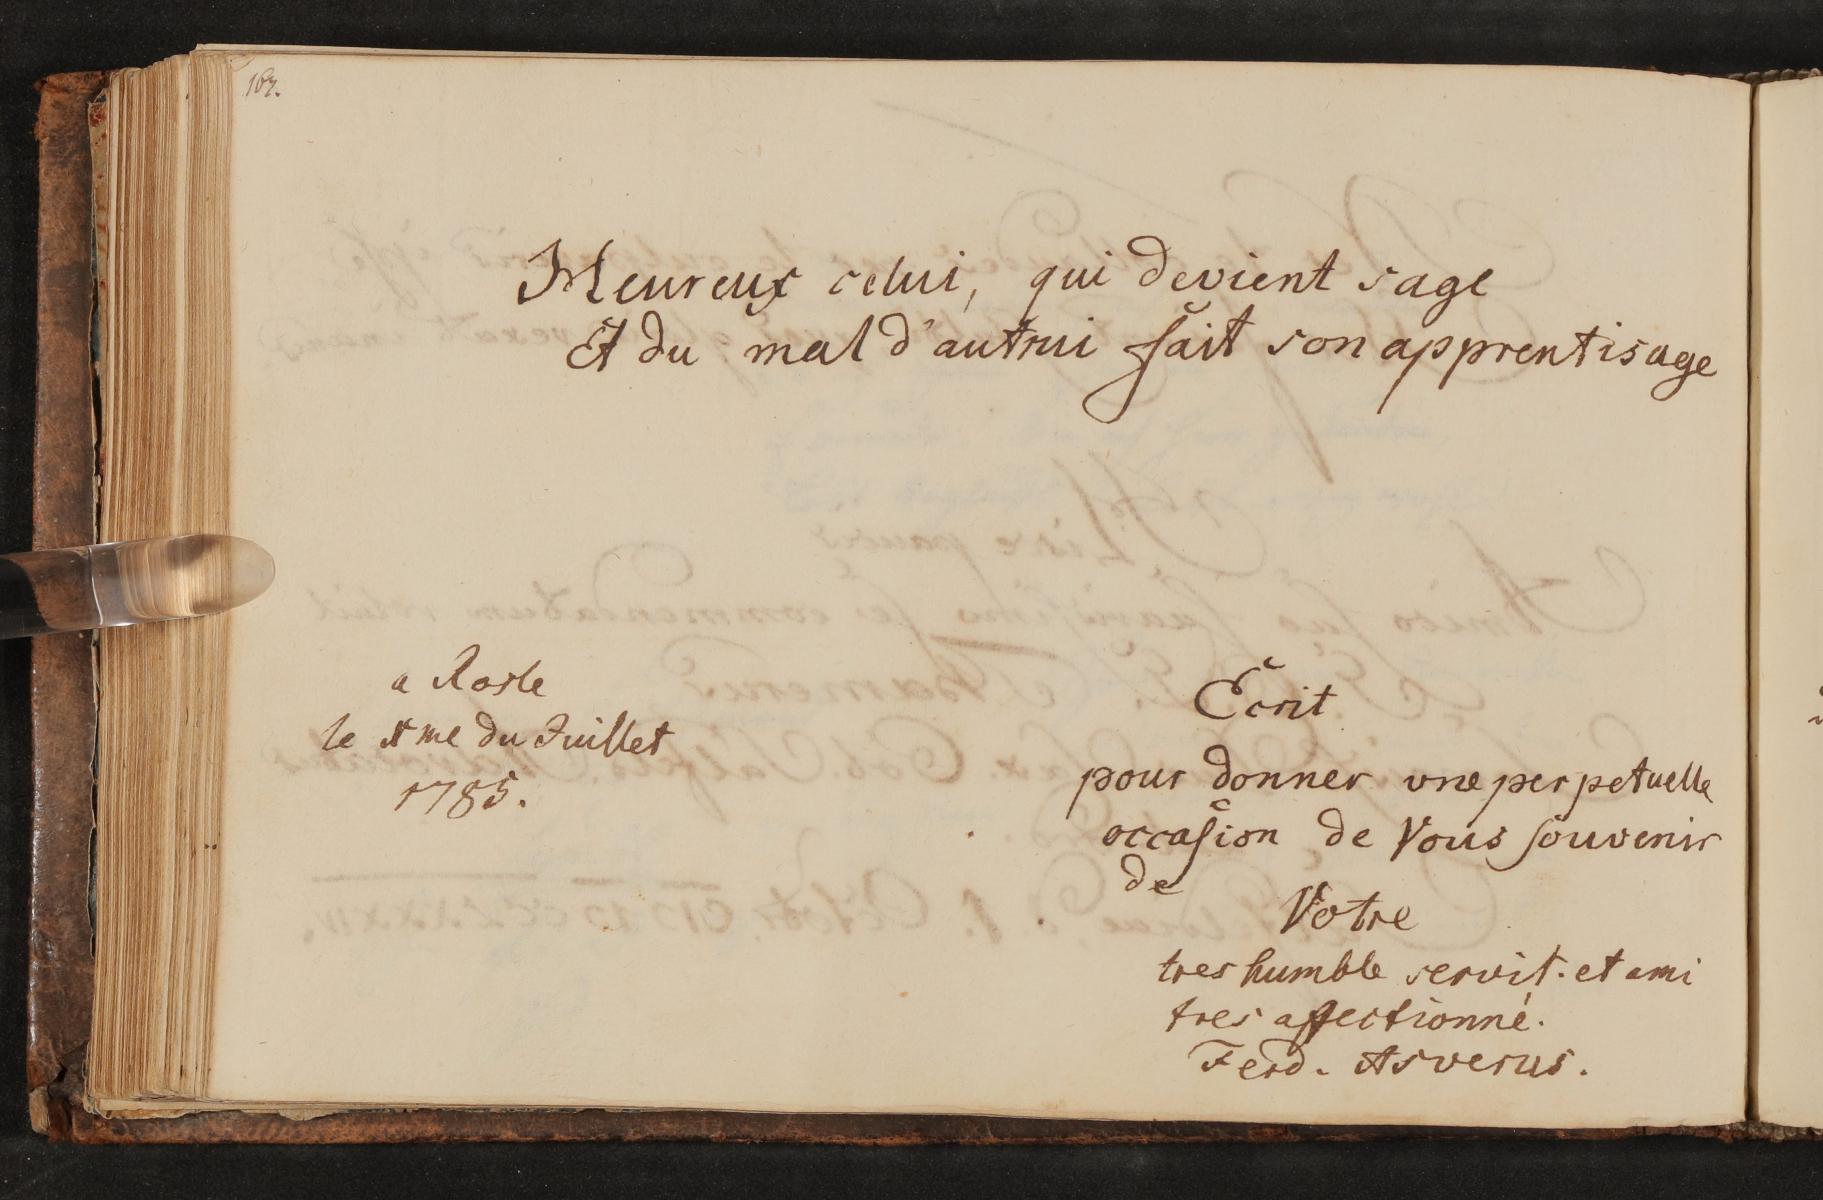 167.
Heureux celui, qui devient sage
Et du mal d'autrui fait son apprentisage
a Rosle
le me du Juillet
1785.
Ecrit
pour donner une perpetuelle
occasion de Vous souvenir
de
Votre
tres humble servit. et ami
tres affectionné.
Ferd. Asverus.